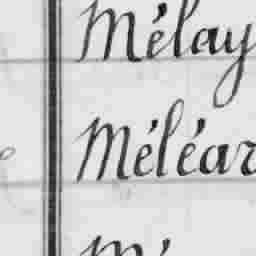 Mélay
Méléar